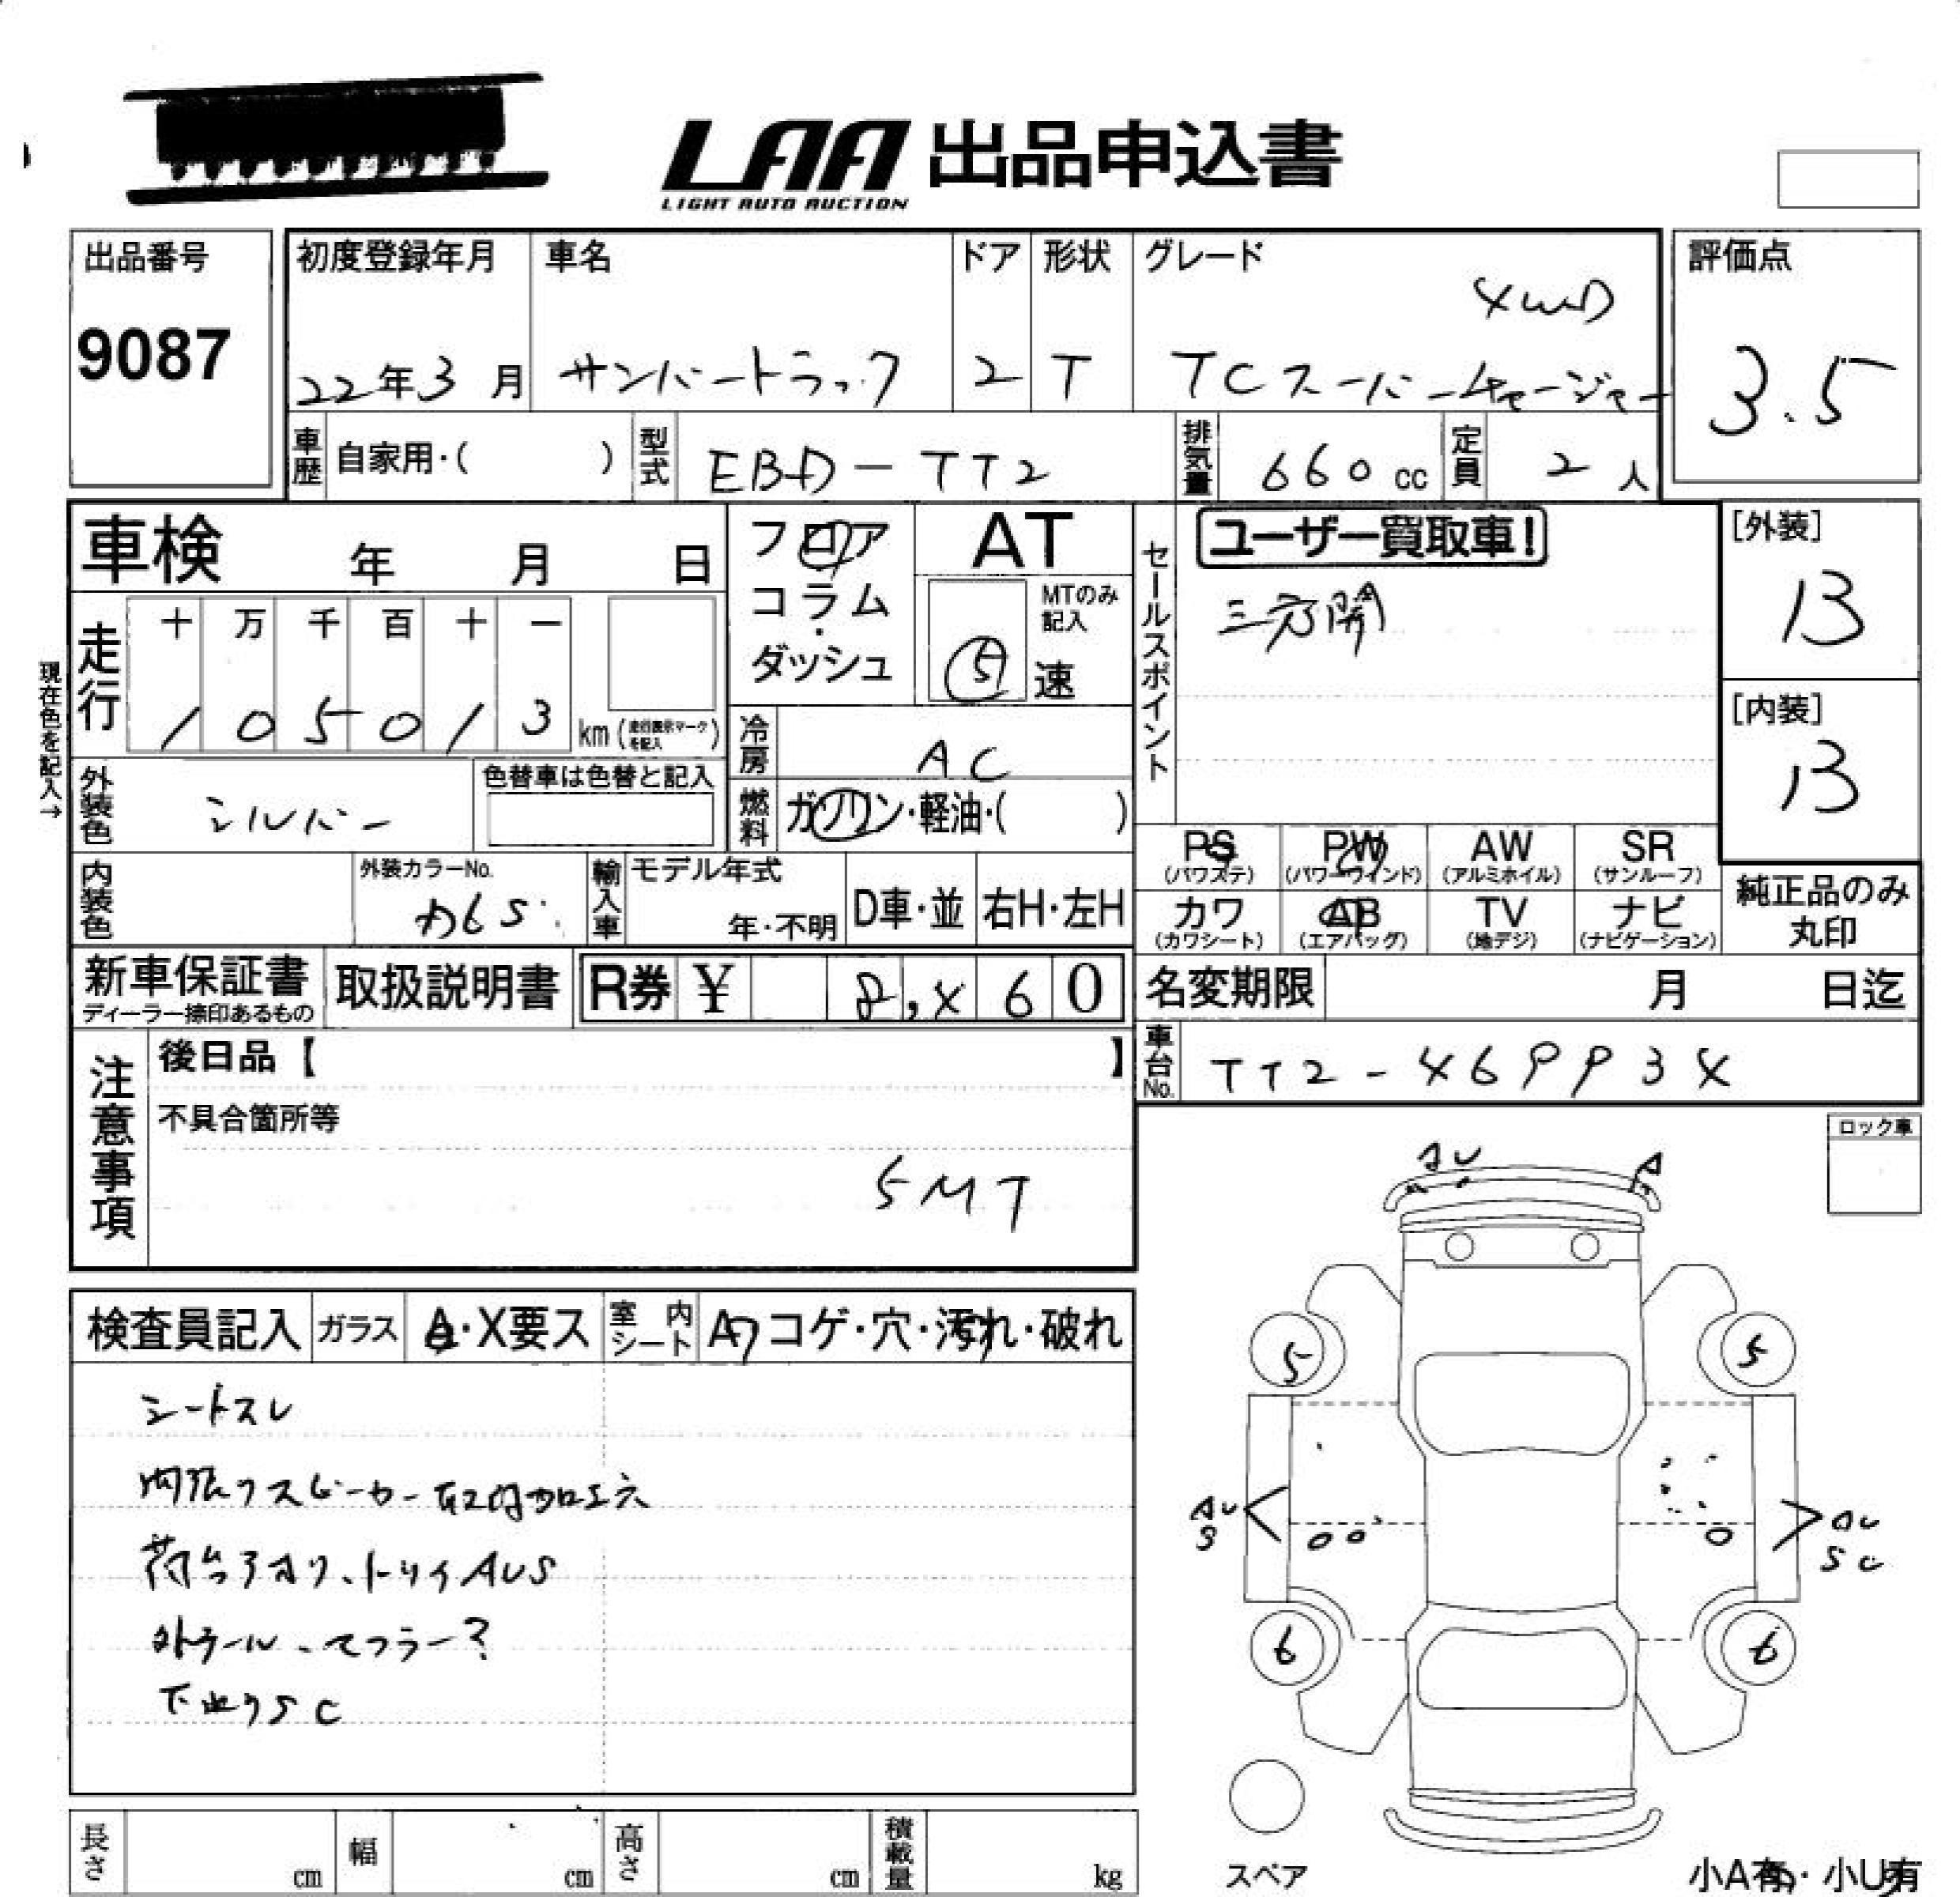 LAA 出品申込書
LIGHT AUTO AUCTION
出品番号
9087
初度登録年月
22年3月
車名
サンバートラック
ドア
2
形状
T
グレード
4WD
TCスーパーチャージャー
評価点
3.5
車歴
自家用・( )
型式
EBD-TT2
排気量
660cc
定員
2人
車検 年 月 日
フロア
コラム
・
ダッシュ
AT
MTのみ
記入
5速
セールスポイント
ユーザー買取車!
三方開
[外装]
B
[内装]
B
現在色を記入→
走行
十 万 千 百 十 一
1 0 5 0 1 3 km (走行表示マークを記入)
冷房
AC
外装色
シルバー
色替車は色替と記入
燃料
ガソリン・軽油・( )
PS
(パワステ)
PW
(パワーウインド)
AW
(アルミホイル)
SR
(サンルーフ)
カワ
(カワシート)
AB
(エアバッグ)
TV
(地デジ)
ナビ
(ナビゲーション)
純正品のみ
丸印
内装色
外装カラーNo.
輸入車
モデル年式
年・不明
D車・並
右H・左H
新車保証書
ディーラー捺印あるもの
取扱説明書
R券 ¥ 8,460
名変期限 月 日迄
車台No.
TT2-469934
注意事項
後日品【 】
不具合箇所等
5MT
ロック車
AU A
検査員記入 ガラス A・X要ス 室内シート A コゲ・穴・汚れ・破れ
シートスレ
内張りスピーカー取付加工穴
荷台 トリイAUS
下廻りSC
5 5
AU
S
AU
SC
6 6
長さ cm
幅 cm
高さ cm
積載量 kg
スペア
小A有・小U有